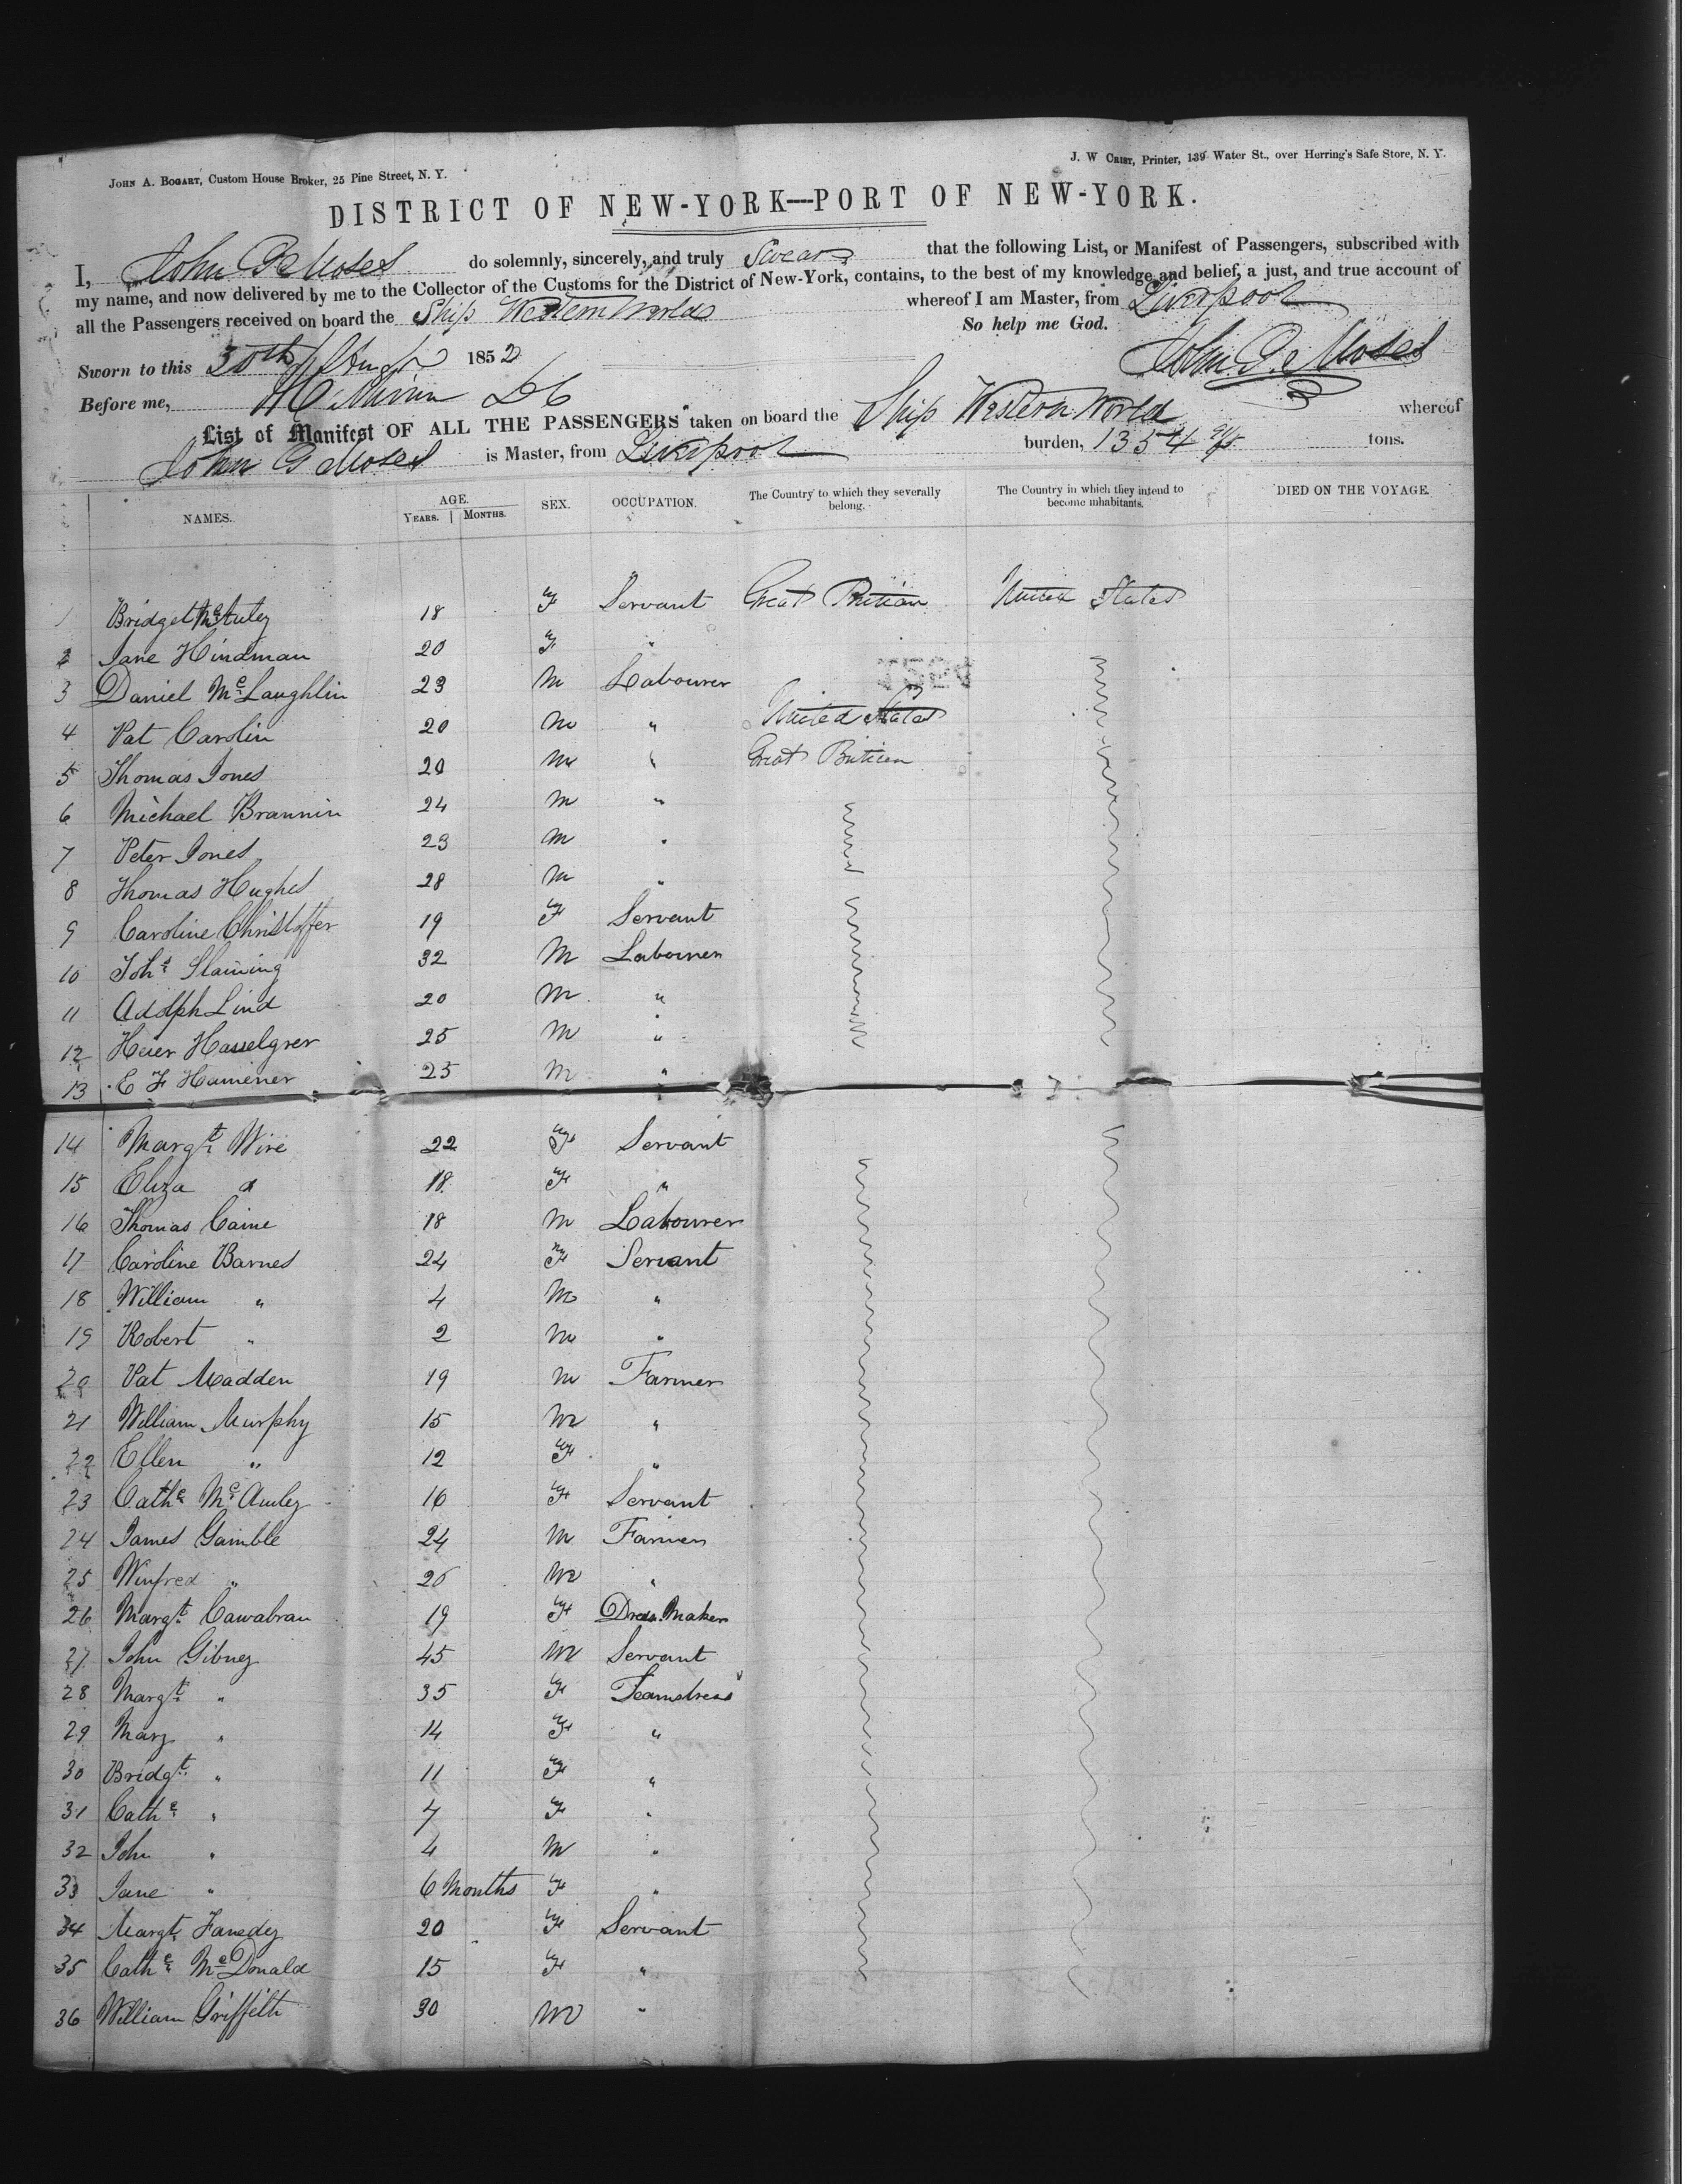 JOHN A. BOGART, Custom House Broker, 25 Pine Street, N. Y.
J. W. CRIST, Printer, 139 Water St., over Herring's Safe Store, N. Y.
DISTRICT OF NEW-YORK—PORT OF NEW-YORK.
I, John G Moses do solemnly, sincerely, and truly Swear that the following List, or Manifest of Passengers, subscribed with
my name, and now delivered by me to the Collector of the Customs for the District of New-York, contains, to the best of my knowledge and belief, a just, and true account of
all the Passengers received on board the Ship Western World whereof I am Master, from Liverpool
So help me God.
Sworn to this 30th Augt 1852 John G. Moses
Before me,
List of Manifest OF ALL THE PASSENGERS taken on board the Ship Western World whereof
John G Moses is Master, from Liverpool burden, 1354 tons.
NAMES. AGE. YEARS. | MONTHS. SEX. OCCUPATION. The Country to which they severally belong. The Country in which they intend to become inhabitants. DIED ON THE VOYAGE.
1 Bridget McAuley 18 F Servant Great Britian United States
2 Jane Hindman 20 F "
3 Daniel Mc Laughlin 23 M Labourer
4 Pat Carolin 20 M " United States
5 Thomas Jones 20 M " Great Britian
6 Michael Brannin 24 M "
7 Peter Jones 23 M "
8 Thomas Hughes 28 M "
9 Caroline Christoffer 19 F Servant
10 Johs Slaining 32 M Labourer
11 Adolph Lind 20 M "
12 Heier Hasselgrer 25 M "
13 E F Hamener 25 M "
14 Margt Wire 22 F Servant
15 Eliza " 18 F "
16 Thomas Caine 18 M Labourer
17 Caroline Barnes 24 F Servant
18 William " 4 M "
19 Robert " 2 M "
20 Pat Madden 19 M Farmer
21 William Murphy 15 M "
22 Ellen " 12 F "
23 Cathe Mc Auley 16 F Servant
24 James Gamble 24 M Farmer
25 Winfred " 26 M "
26 Margt Cawabran 19 F Dress Maker
27 John Gibney 45 M Servant
28 Margt " 35 F Seamstress
29 Mary " 14 F "
30 Bridgt " 11 F "
31 Cathe " 7 F "
32 John " 4 M "
33 Jane " 6 Months F "
34 Margt Fanedy 20 F Servant
35 Cathe Mc Donald 15 F "
36 William Griffith 30 M "